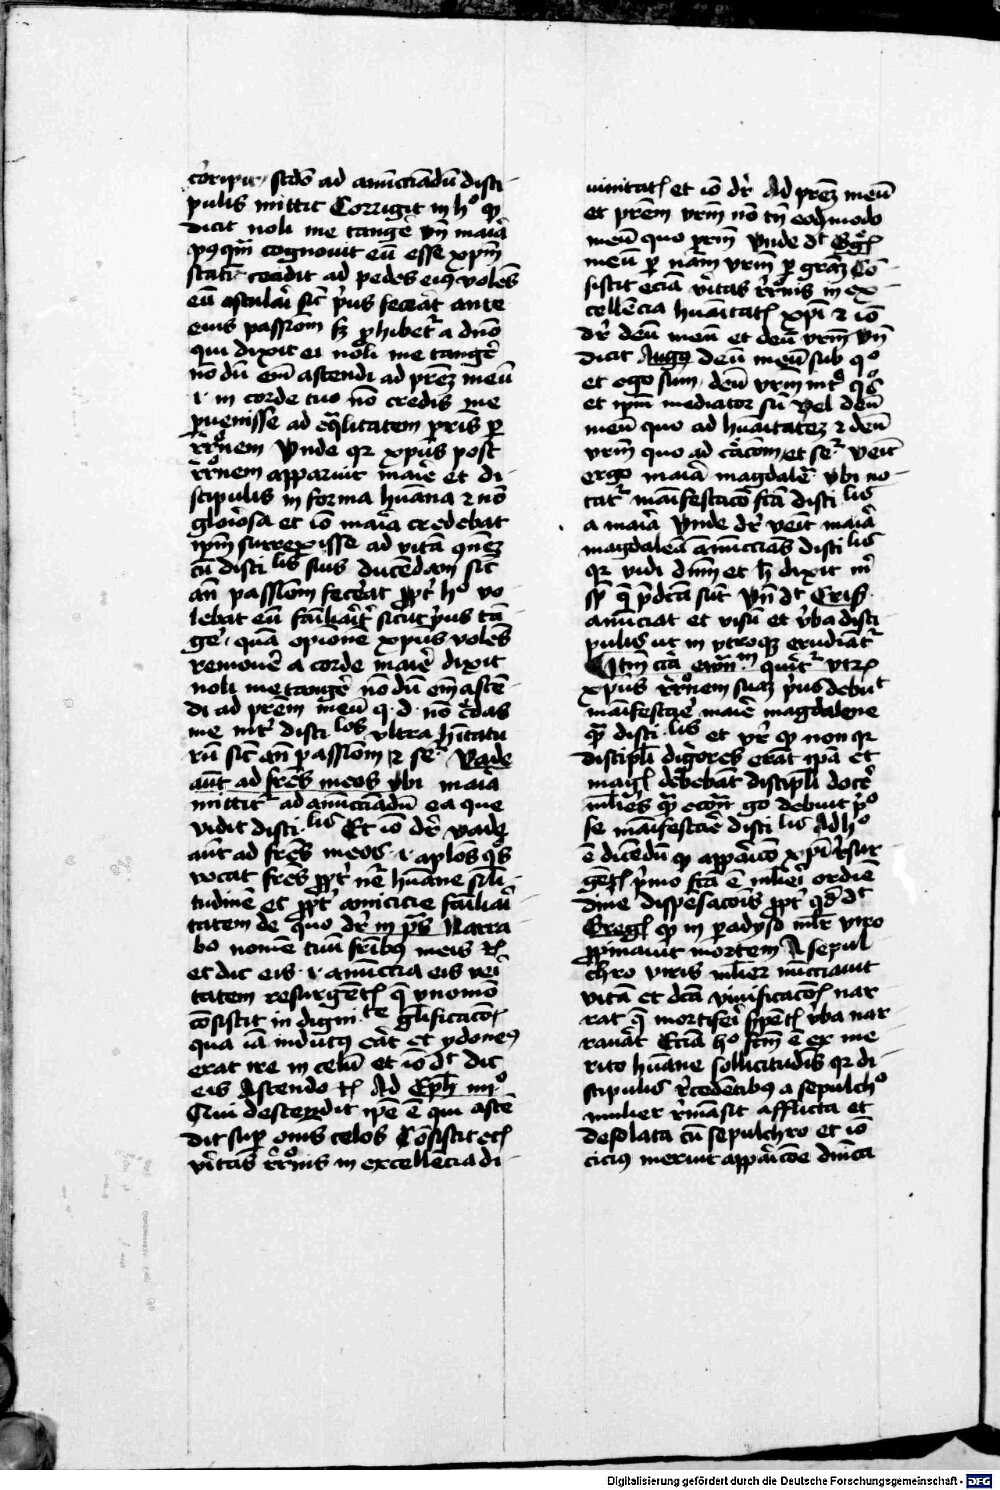 corripit / scdo ad anucciadu disci-
pulis mittit Corrigit in hoc qd
dicit noli me tangere Vn maria
postqm cognovit eu esse xpm
stati cecidit ad pedes eius voles
eu osculari sic prius fecerat ante
eius passiom sz prohibetr a dno
qui dixit ei noli me tangere
no du em ascendi ad prez meu
.i. in corde tuo no credis me
puenisse ad eqlitatem pris per
rronem Vnde qr xpus post
rronem apparuit marie et di-
scipulis in forma huana z no
gloriosa et io maria credebat
ipm surrexisse ad vita
cu disci lis suis ducedam sic
an passiom fecerat ppt hoc vo
lebat eu sicut prius ta
gere qua opione xpus voles
removere a corde marie dixit
noli me tangere no du em asce-
di ad prem meu q.d. no credas
me intr disci los vltra huitatu
sic an passiom z Vade
aut ad fres meos vbi maria
mittitr ad anucciadu ea que
vidit disci lis Et io dr vade
aut ad fres meos .i. aplos qs
vocat fres ppt huane simili
tudine et ppt amicicie familiari
tatem de quo dr in ps Narra
bo nomen tuu fribus meis
et dic eis .i. anuccia eis veri
tatem resurgetis
cosistit in digni te glificacois
qua ia indutus erat et ydoneus
erat ire in celu et io dt dic
eis Ascendo Ad Eph iiiio
Qui descendit ipe e qui asce
dit sup ones celos Cosistit
vitas rronis in excellecia di-
vinitatis et io dr Ad prez meu
et prem vrm no tn eod modo
meu quo prim Vnde dt
meu per nam vrm per gram Co-
sistit ecia vitas rronis in ex-
cellecia huaitatis xpi z io
dr deu meu et deu vrm Vn
dicit Augus deu meu sub quo
et ego sum, deu vrm intr qs
et ipm mediator su Vel deu
meu quo ad huaitatez z deu
vrm quo ad et ser Veit
ergo maria magdalena vbi no-
tatr maifestaco fta disci lis
a maria Vnde dr veit maria
magdalea anuccians disci lis
qr vidi dnm et h dixit m
Vn dt Cris
anuciat et visu et vba disci
pulis ut in vtroque erudiatr
Itm cia ewm quitr vtrum
xpus rronem suaz prius debuit
maifestare marie magdalene
qm disci lis et vr qd non qr
discipli digores erat ipa et
magis debebat discipli docere
mlieres qm econ go debuit po
se maifestare disci lis Ad ho
e dicedu qd apparico xpi resur
getis primo fta e mlieri ordine
divine dispesacois ppt qd dt
Gregs qd in paradyso mlr viro
ppinavit mortem A sepul
chro viris mlier nucciavit
vita et dca vivificacois nar
rat que mortiferi spetis vba nar
ravat Ecia ho ftm e ex me
rito huane sollicitudis qr di-
scipulis rcedetibus a sepulcho
mulier rmasit afflicta et
desolata cu sepulchro et io
cicius meruit apparicoe dnica
Digitalisierung gefördert durch die Deutsche Forschungsgemeinschaft - DFG